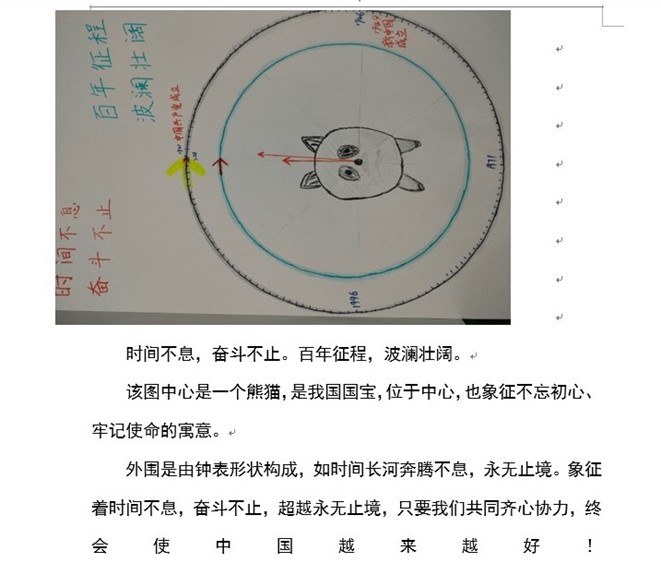 百年征程
波澜壮阔
时间不息
奋斗不止
中国共产党成立
1946
1949
新中国
成立
1971
1996
时间不息，奋斗不止。百年征程，波澜壮阔。
该图中心是一个熊猫，是我国国宝，位于中心，也象征不忘初心、
牢记使命的寓意。
外围是由钟表形状构成，如时间长河奔腾不息，永无止境。象征
着时间不息，奋斗不止，超越永无止境，只要我们共同齐心协力，终
会使中国越来越好！